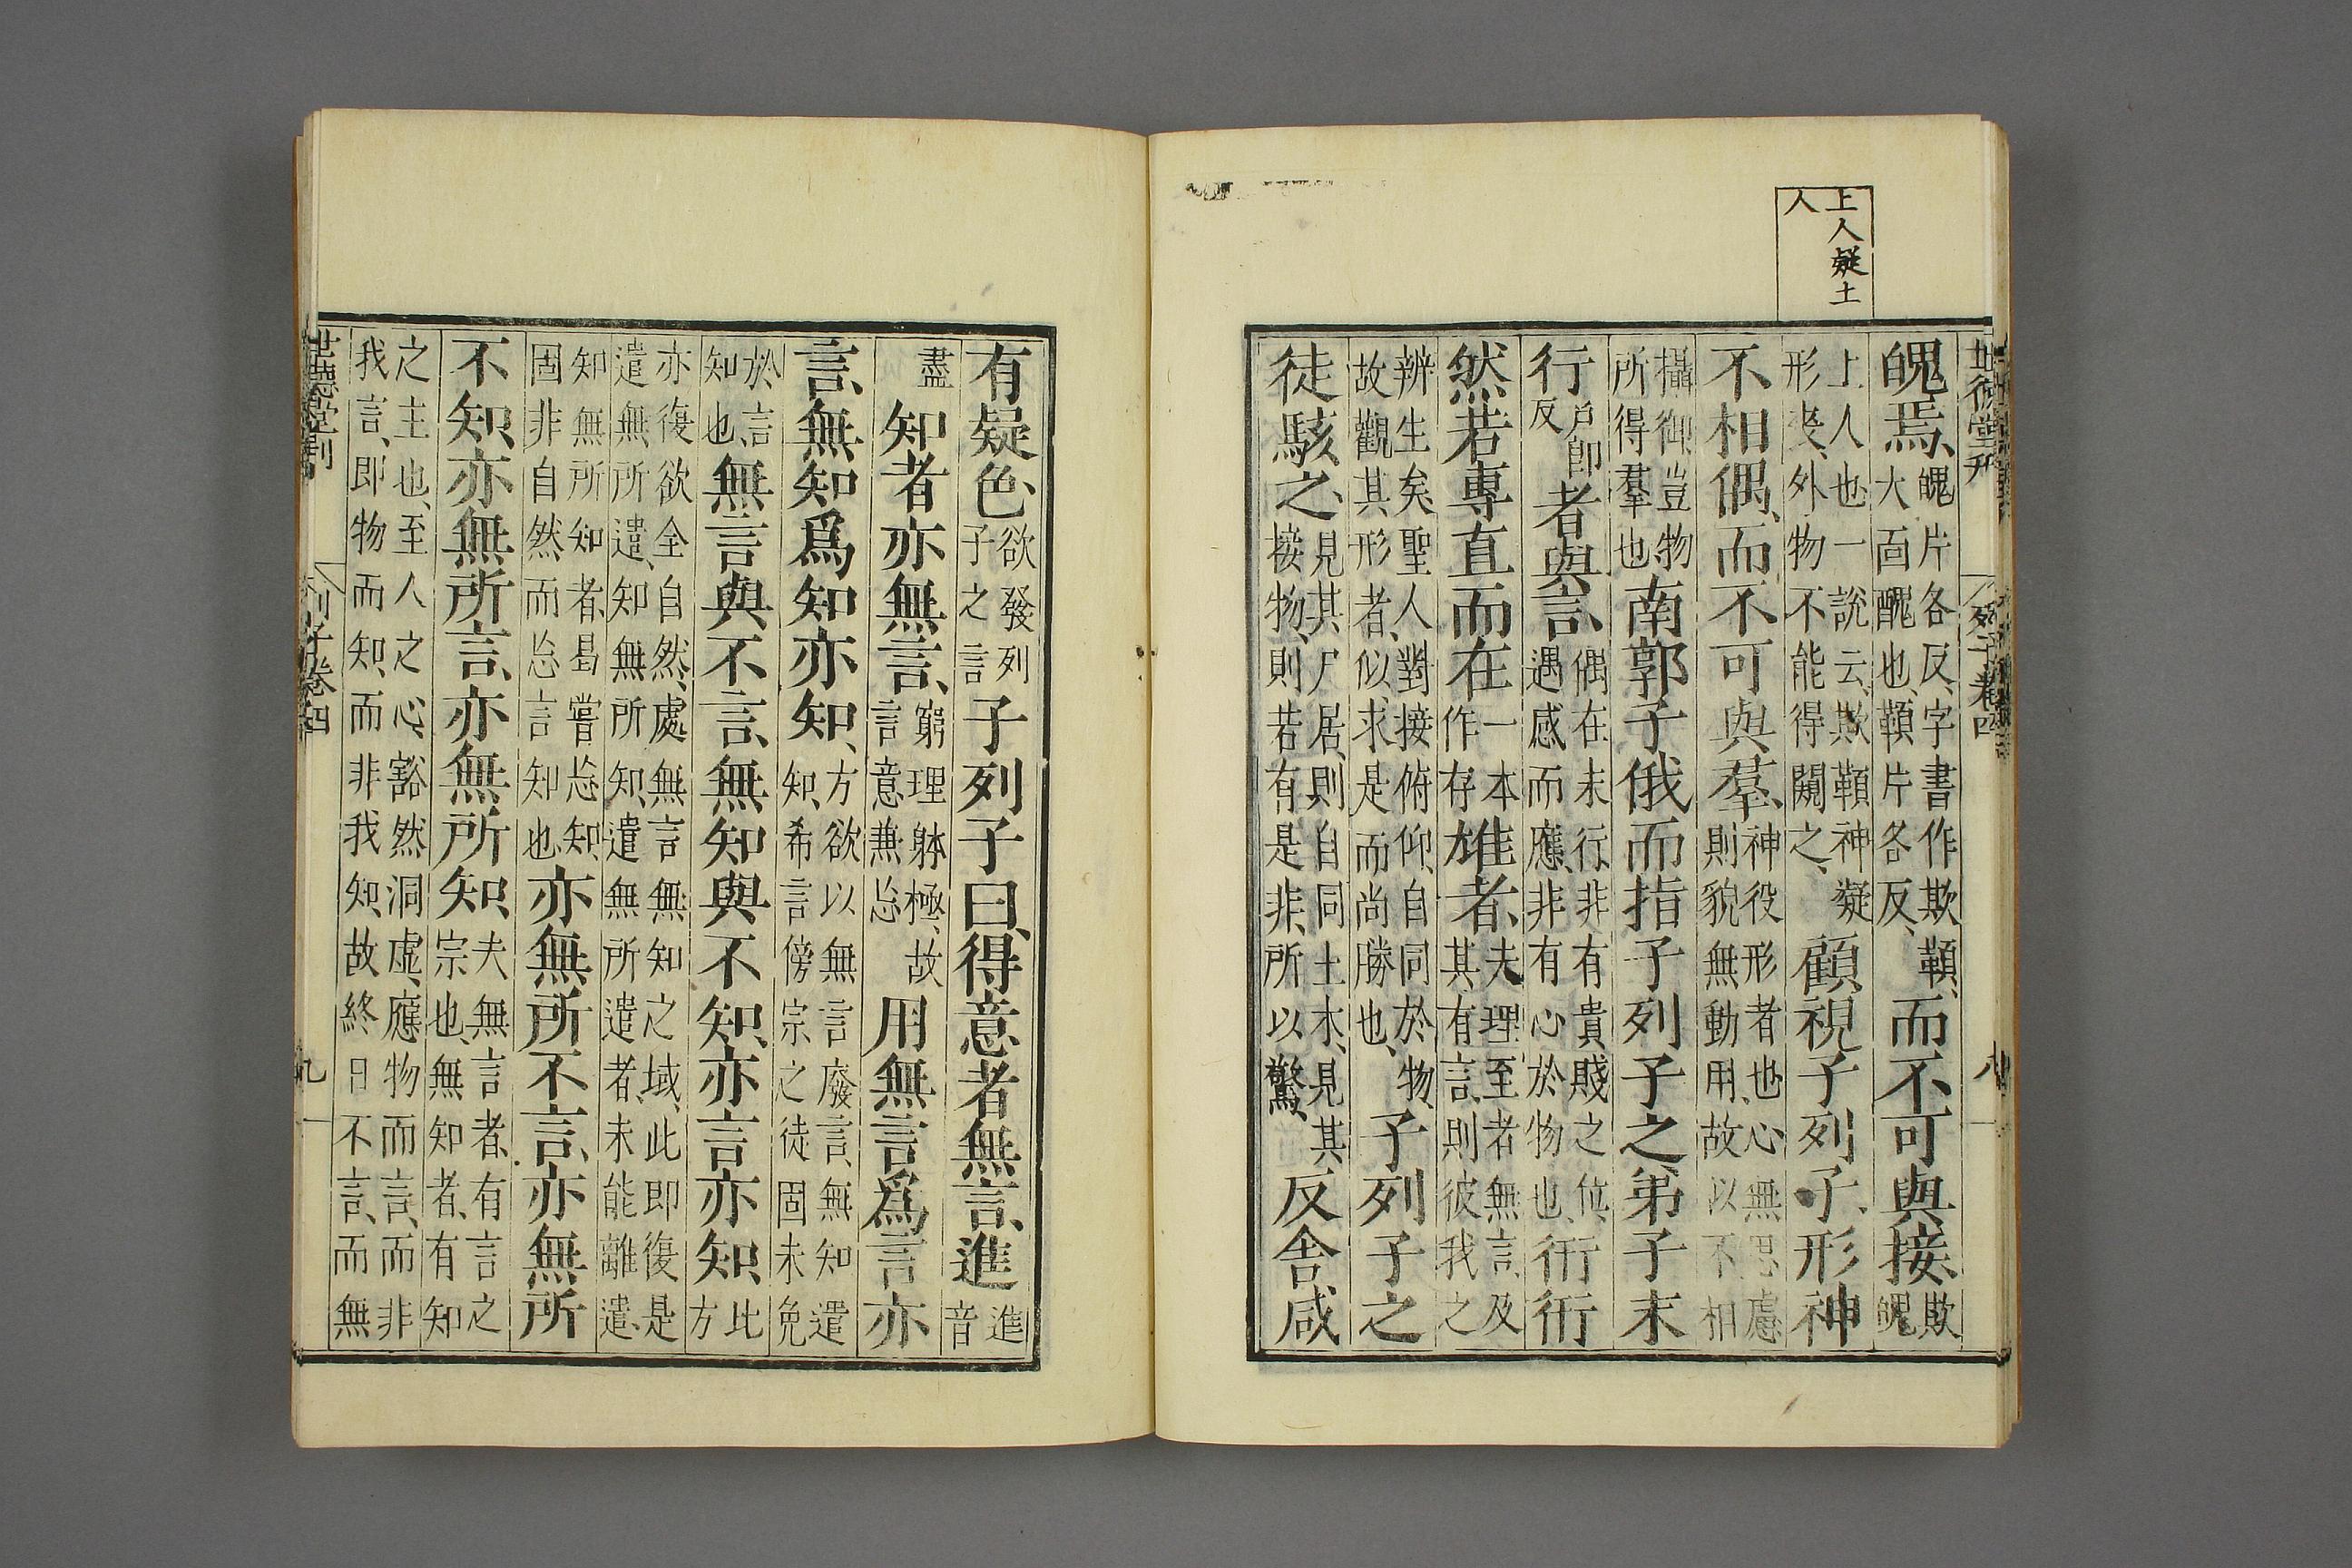 上人疑土
人
世德堂刊
列子卷四
八
魄焉、魄片各反、字書作欺
大面醜也、片各反、而不可與接、欺
魄
上人也一說云、欺神凝
形喪、外物不能得闚之、顧視子列子、形神
不相偶、而不可與羣、神役形者也心無思慮
則貌無動用、故以不相
攝御豈物
所得羣也南郭子俄而指子列子之弟子末
行戸郎
反者與言、偶在末行、非有貴賤之位、
遇感而應、非有心於物也、衎衎
然若專直而在一本
作存雄者、夫理至者無言、及
其有言、則彼我之
辨生矣、聖人對接俯仰、自同於物、
故觀其形者、似求是而尚勝也、子列子之
徒駭之、見其尸居、則自同土木、見其
接物、則若有是非、所以驚、反舍咸
有疑色、欲發列
子之言子列子曰、得意者無言、進進
音
盡知者亦無言、窮理躰極、故
言意兼忘用無言爲言亦
言、無知爲知亦知、方欲以無言廢言、無知遣
知、希言傍宗之徒固未免
於言
知也、無言與不言、無知與不知、亦言亦知、比
方
亦復欲全自然、處無言無知之域、此即復是
遣無所遣、知無所知、遣無所遣者、未能離遣、
知無所知者、曷嘗忘知、
固非自然而忘言知也亦無所不言、亦無所
不知、亦無所言、亦無所知、夫無言者、有言之
宗也、無知者、有知
之主也、至人之心、豁然洞虛、應物而言、而非
我言、即物而知、而非我知、故終日不言、而無
世德堂刊
列子卷四
九